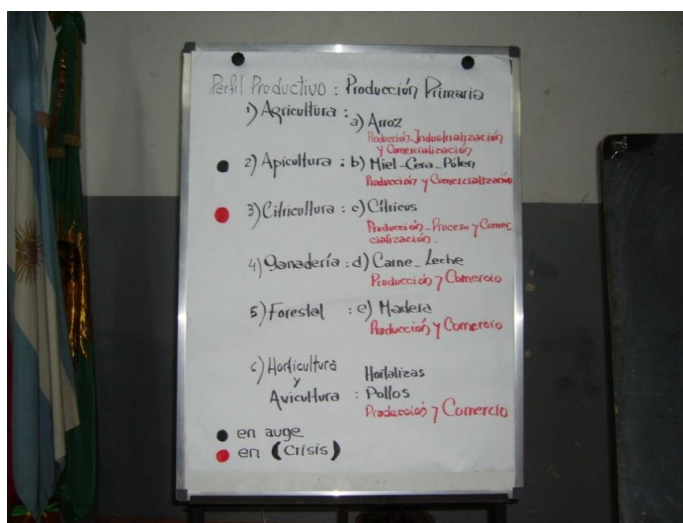 Perfil Productivo : Producción Primaria
1) Agricultura : a) Arroz
Producción_Industrialización
y Comercialización
2) Apicultura : b) Miel_Cera_Pólen
Producción y Comercialización
3) Citricultura : c) Cítricos
Producción_Proceso y Comer
cialización.
4) Ganadería : d) Carne_Leche
Producción y Comercio
5) Forestal : e) Madera
Producción y Comercio
6) Horticultura Hortalizas
y
Avicultura : Pollos
Producción y Comercio
en auge
en (Crisis)